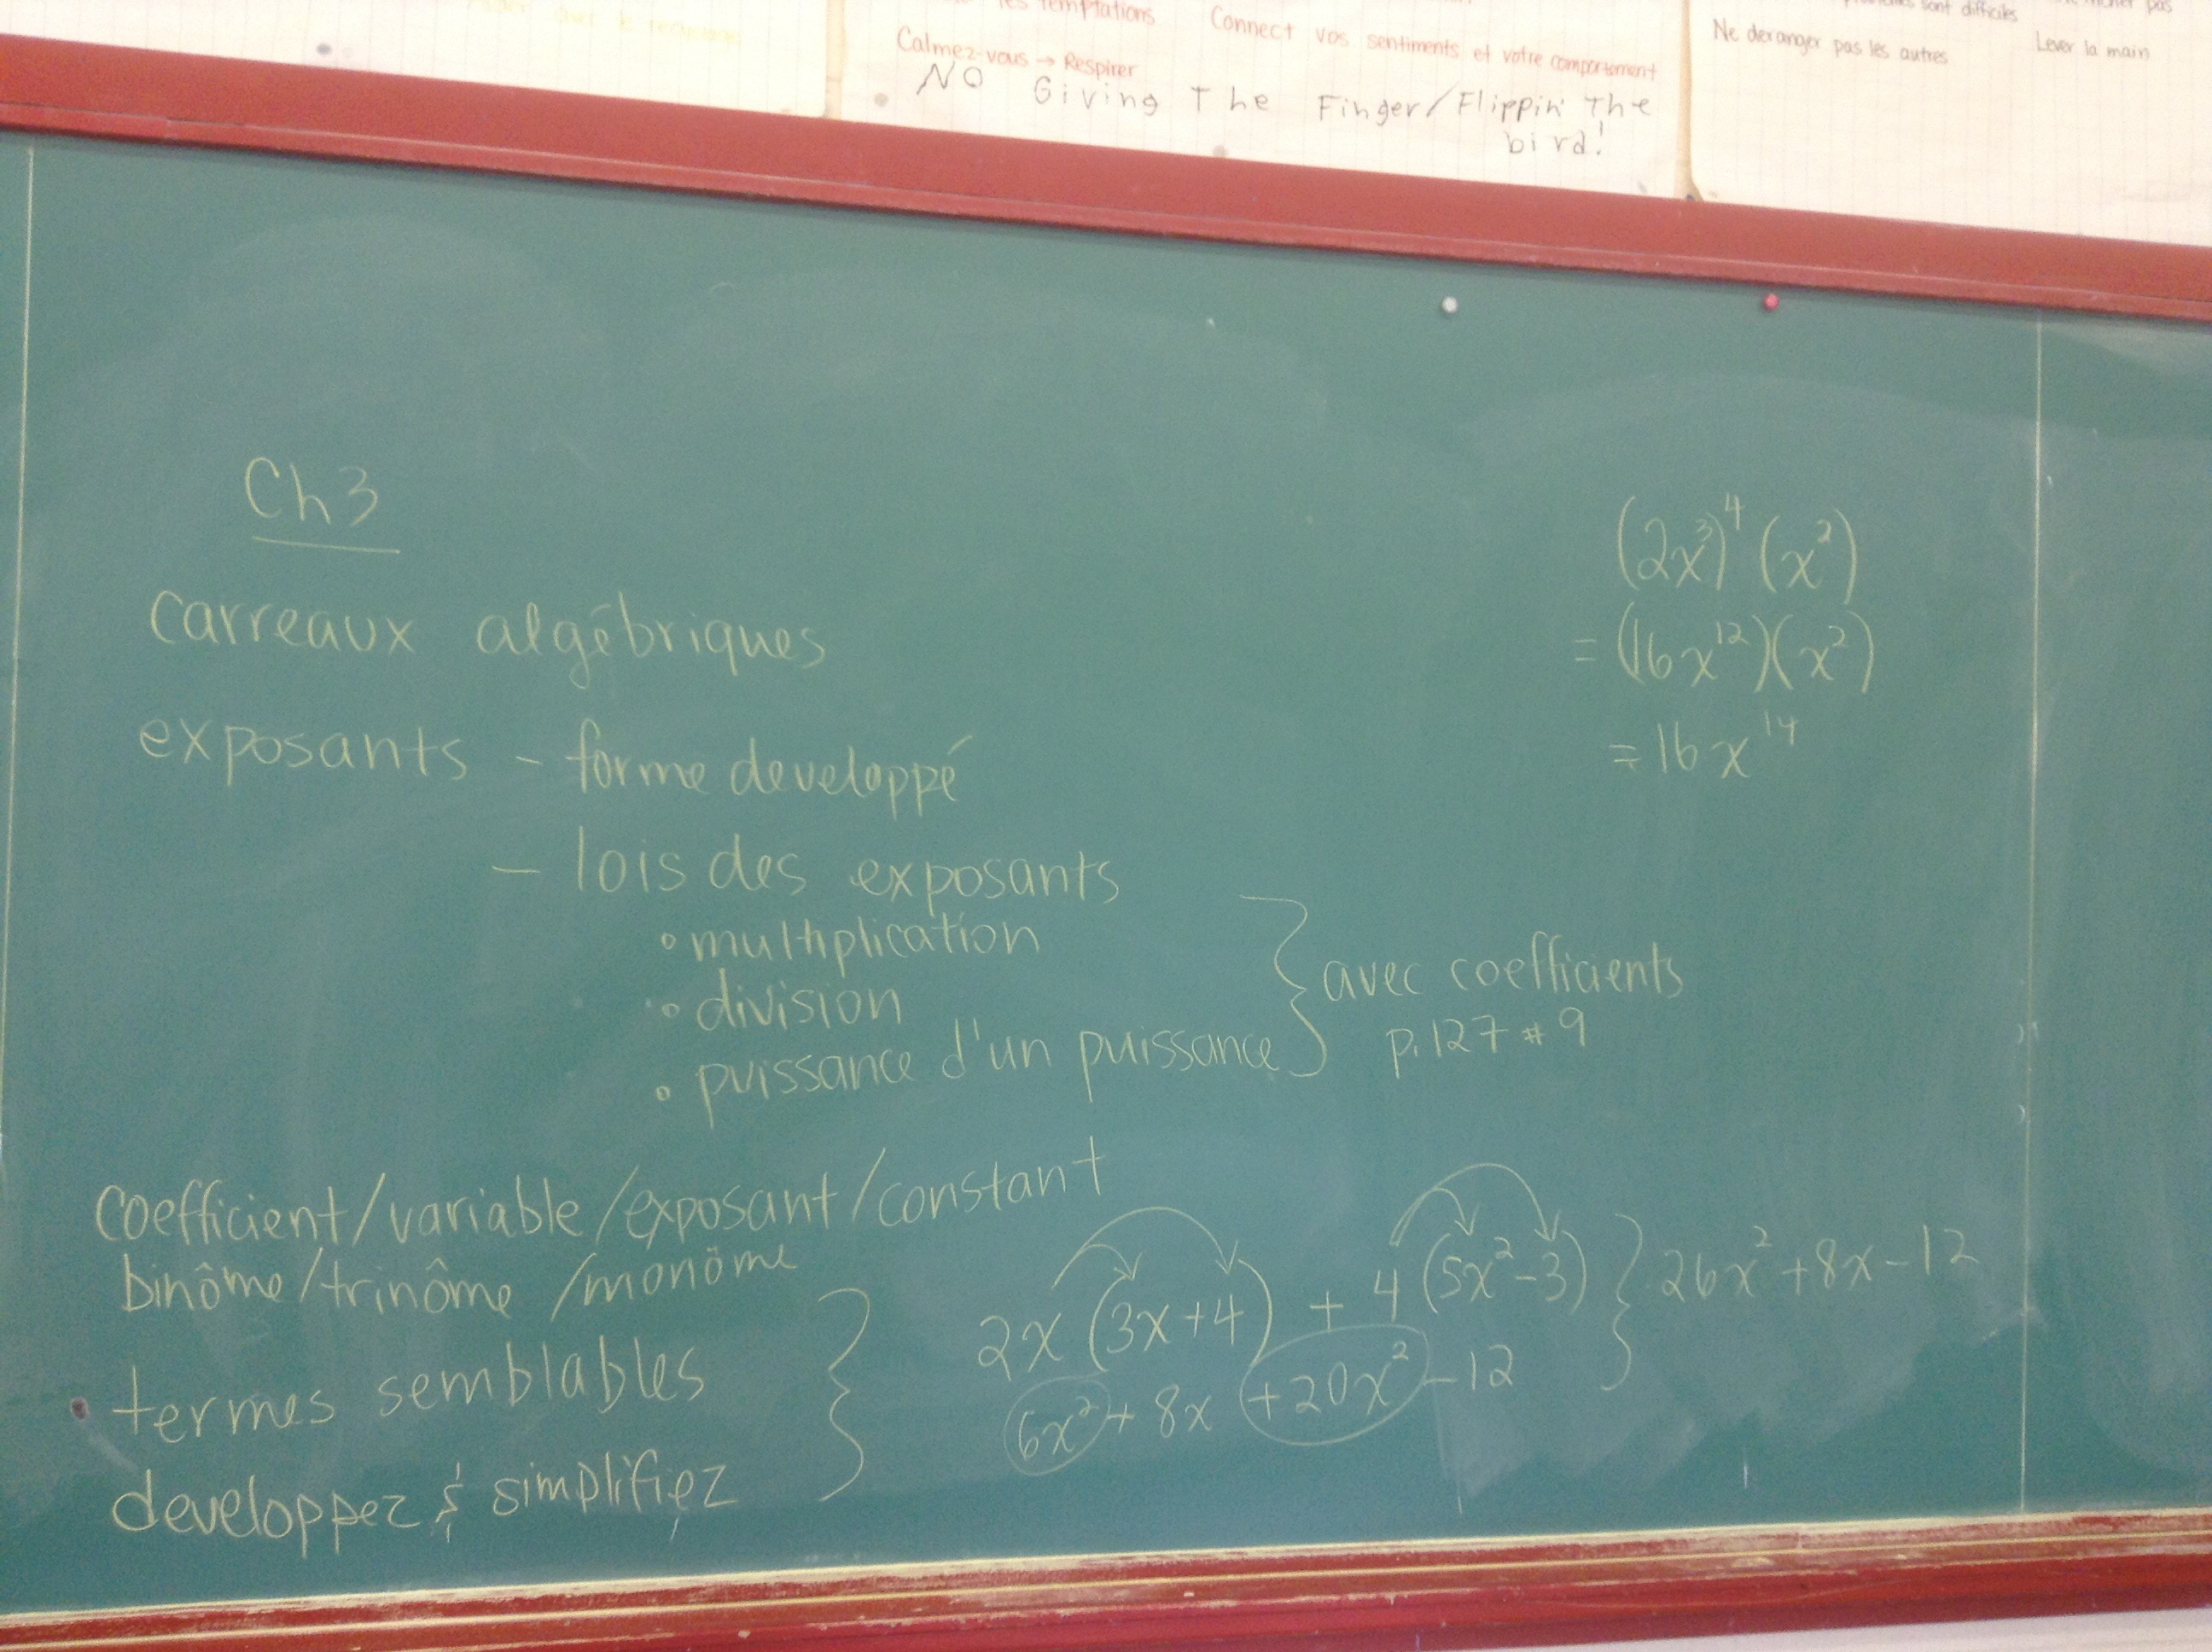 avec le
les temptations Connect vos sentiments et votre comportement
Calmez-vous → Respirer
NO Giving The Finger/Flippin' The
bird!
sont difficiles pas
Ne deranger pas les autres Lever la main
Ch 3
carreaux algébriques
exposants - forme developpé
- lois des exposants
• multiplication
• division
• puissance d'un puissance
} avec coefficients
p. 127 # 9
(2x³)⁴(x²)
= (16x¹²)(x²)
= 16x¹⁴
coefficient/variable/exposant/constant
binôme/trinôme/monôme
termes semblables
developpez & simplifiez
2x(3x+4) + 4(5x²-3) } 26x²+8x-12
6x² + 8x +20x² -12